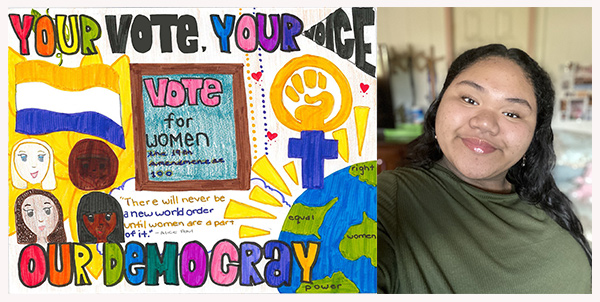 YOUR VOTE, YOUR VOICE
VOTE
for
WOMEN
the 19th
amenement at
100
"There will never be
a new world order
until women are a part
of it." - Alice Paul
right
equal
women
power
OUR DEMOCRAY